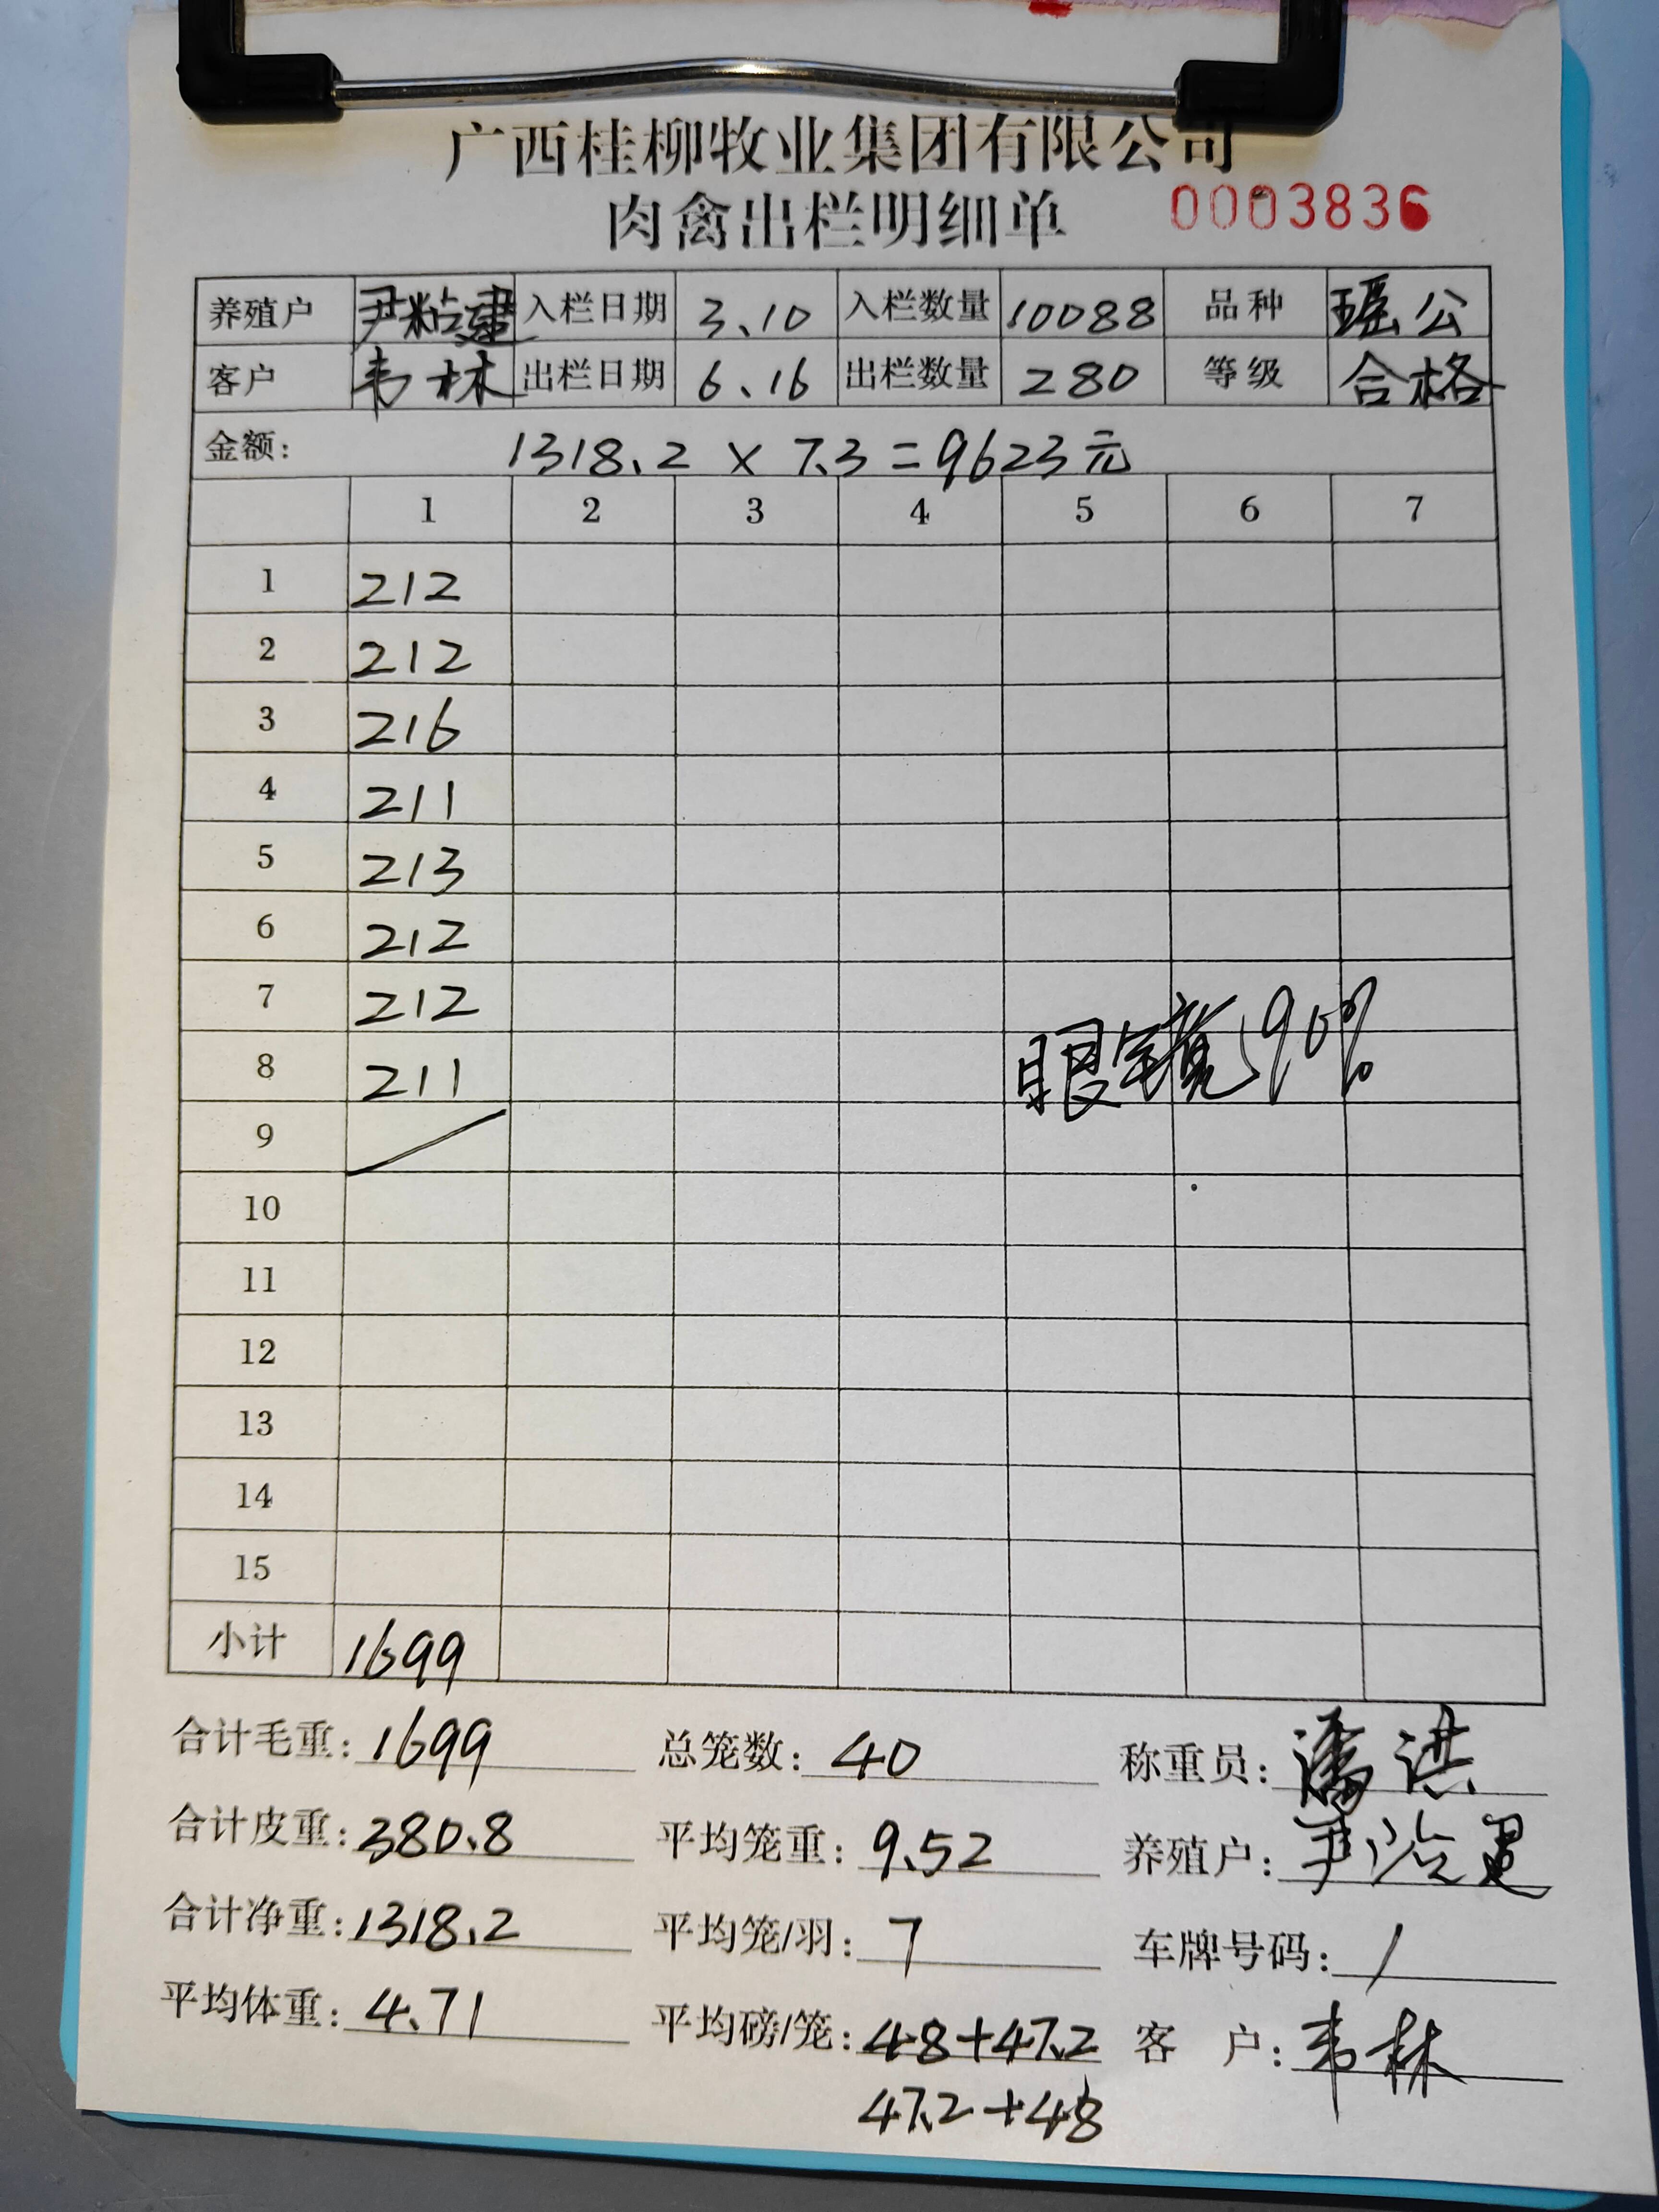 广西桂柳牧业集团有限公司
肉禽出栏明细单 0003836
养殖户 尹粘建 入栏日期 3.10 入栏数量 10088 品种 瑶公
客户 韦林 出栏日期 6.16 出栏数量 280 等级 合格
金额: 1318.2 × 7.3 = 9623元
1 2 3 4 5 6 7
1 212
2 212
3 216
4 211
5 213
6 212
7 212
眼镜90%
8 211
9
10
11
12
13
14
15
小计 1699
合计毛重: 1699 总笼数: 40 称重员: 潘洪
合计皮重: 380.8 平均笼重: 9.52 养殖户: 尹
合计净重: 1318.2 平均笼/羽: 7 车牌号码: /
平均体重: 4.71 平均磅/笼: 48+47.2 客 户: 韦林
47.2+48